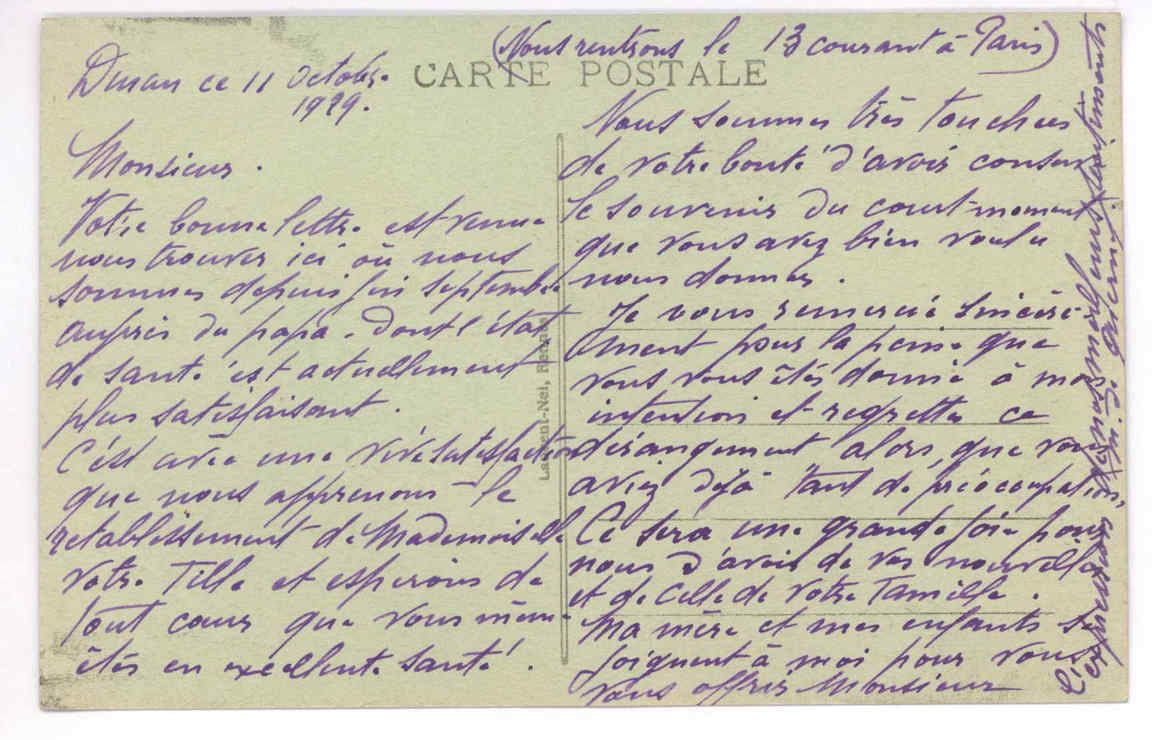 (Nous rentrons le 13 courant à Paris)
Dinan ce 11 Octobre
1929.
CARTE POSTALE
Monsieur.
Votre bonne lettre est venue
nous trouver ici où nous
sommes depuis fin septembre
auprès du papa. Dont l'état
de santé est actuellement
plus satisfaisant.
C'est avec une vive satisfaction
que nous apprenons le
rétablissement de Mademoiselle
votre Fille et espérons de
tout cœur que vous même
êtes en excellente santé.
Nous sommes très touchées
de votre bonté d'avoir conservé
le souvenir du court moment
que vous avez bien voulu
nous donner.
Je vous remercie sincère-
ment pour la peine que
vous vous êtes donnée à mon
intention et regrette ce
dérangement alors, que vous
aviez déjà tant de préoccupations,
Ce sera une grande joie pour
nous d'avoir de vos nouvelles
et de celle de votre Famille.
Ma mère et mes enfants se
joignent à moi pour vous
vous offrir Monsieur
l'expression de nos meilleurs sentiments